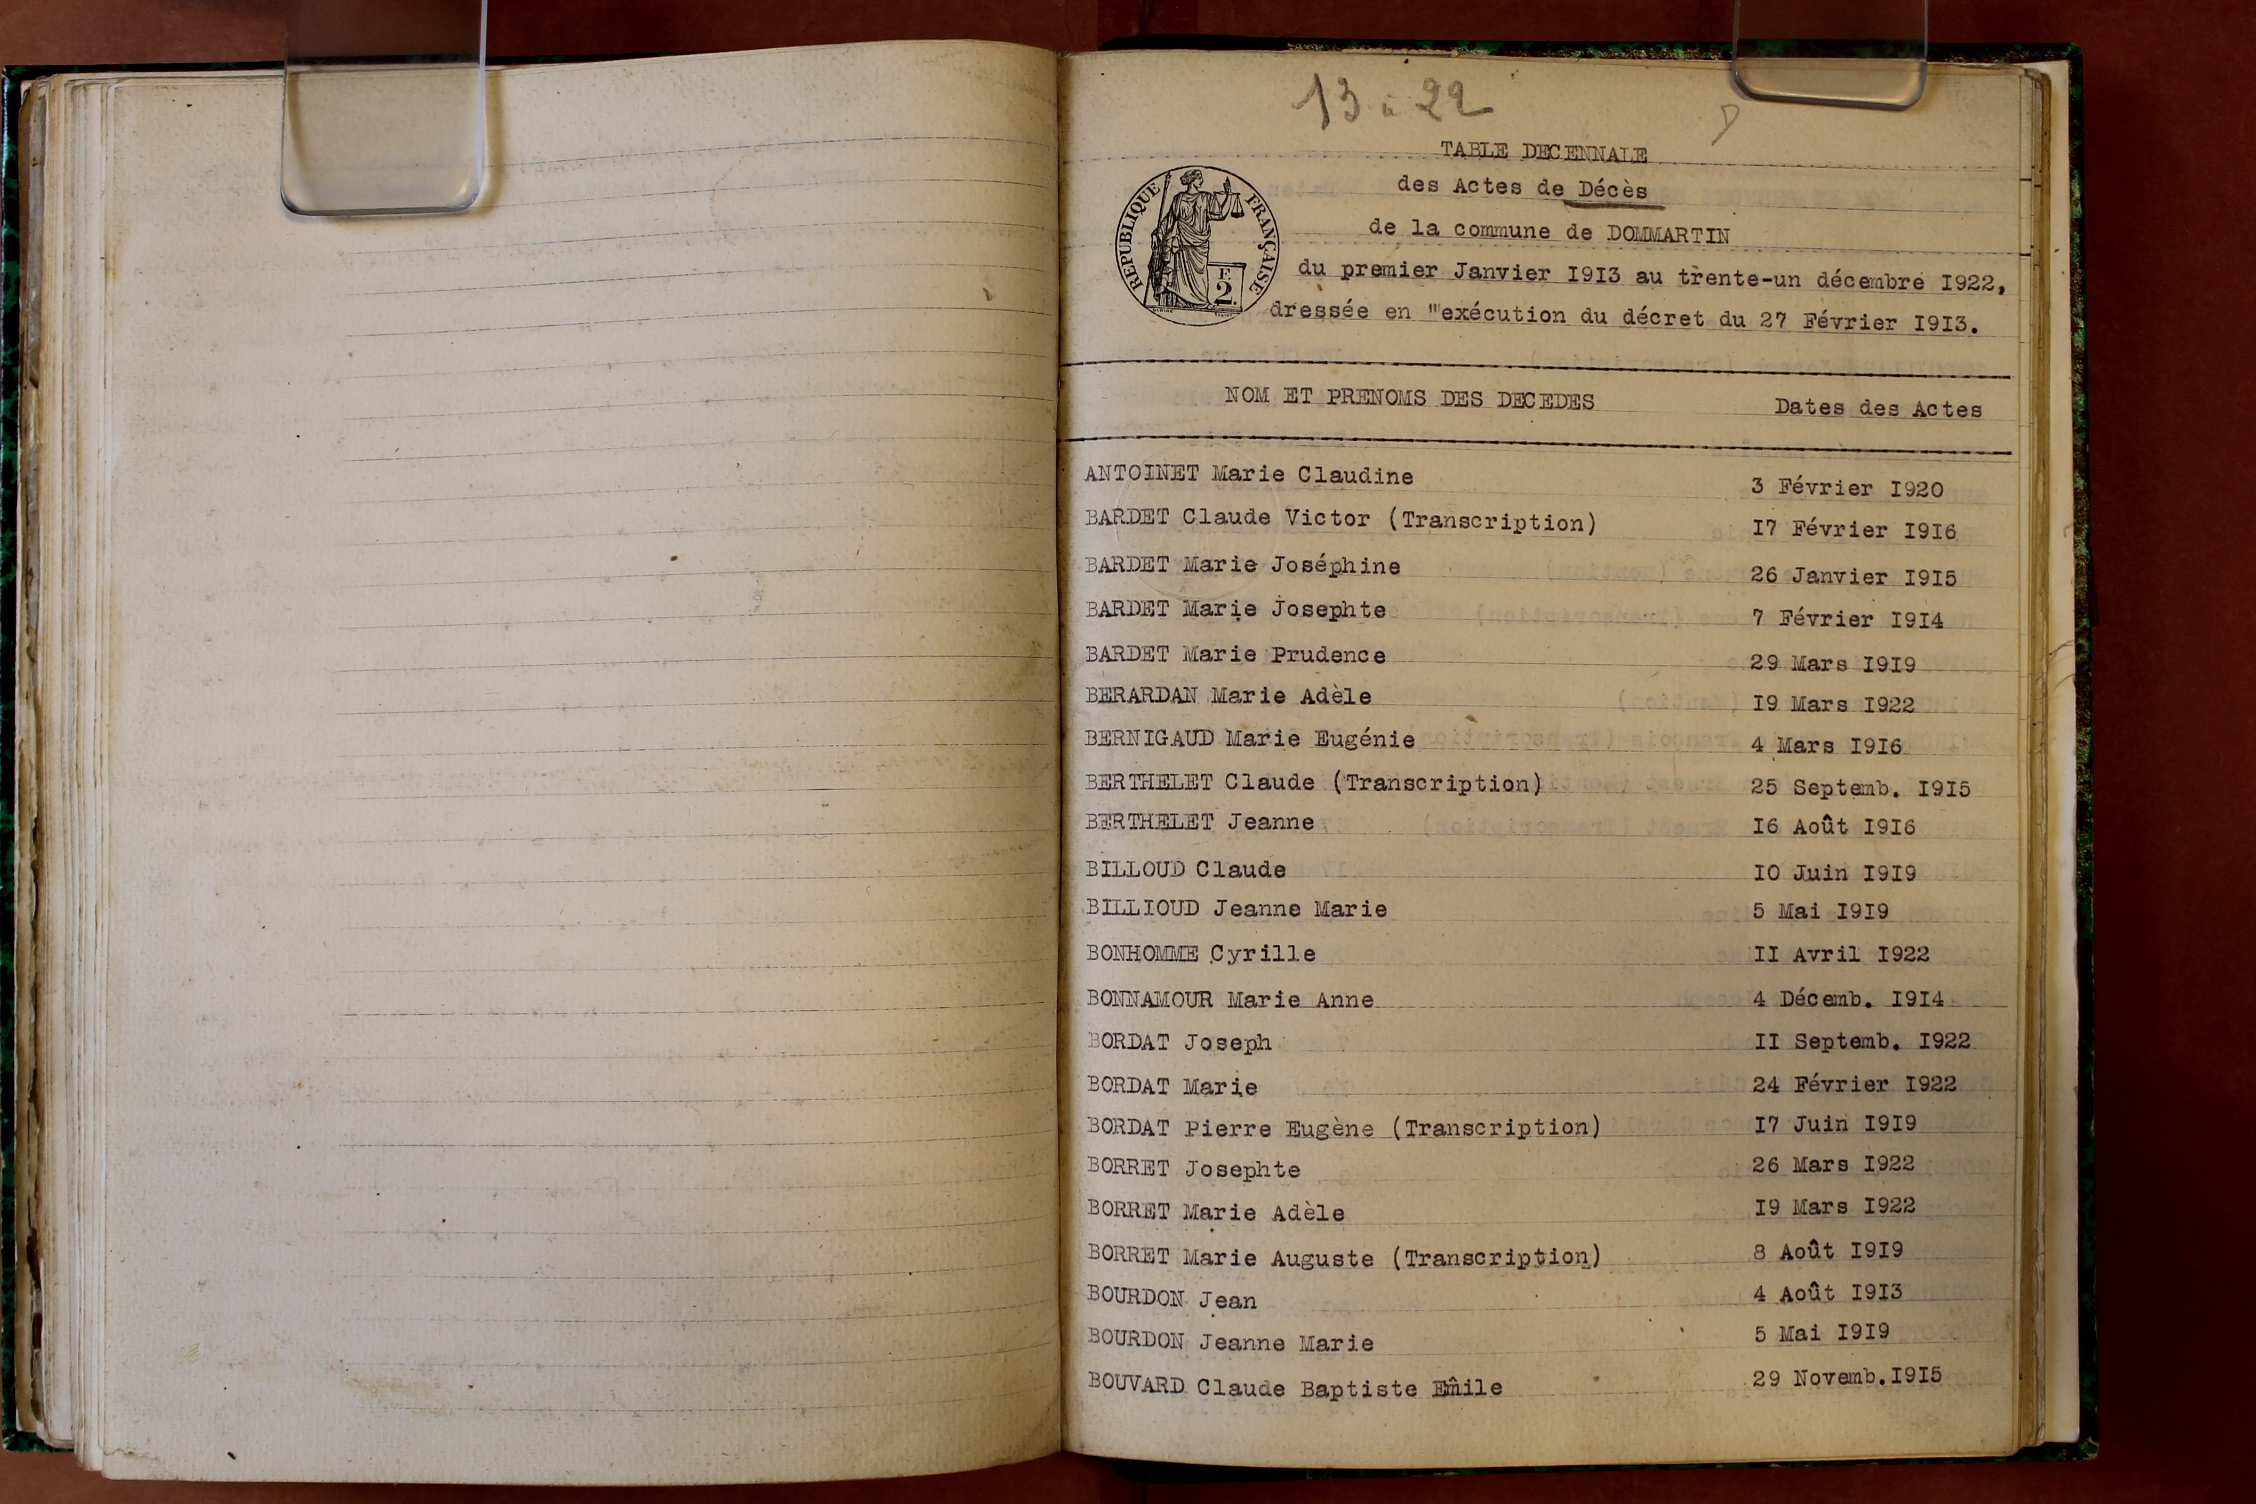 13 à 22
D
TABLE DECENNALE
des Actes de Décès
de la commune de DOMMARTIN
REPUBLIQUE FRANÇAISE
F.
2.
du premier Janvier I9I3 au trente-un décembre I922,
dressée en "exécution du décret du 27 Février I9I3.
NOM ET PRENOMS DES DECEDES Dates des Actes
ANTOINET Marie Claudine 3 Février I920
BARDET Claude Victor (Transcription) I7 Février I9I6
BARDET Marie Joséphine 26 Janvier I9I5
BARDET Marie Josephte 7 Février I9I4
BARDET Marie Prudence 29 Mars I9I9
BERARDAN Marie Adèle I9 Mars I922
BERNIGAUD Marie Eugénie 4 Mars I9I6
BERTHELET Claude (Transcription) 25 Septemb. I9I5
BERTHELET Jeanne I6 Août I9I6
BILLOUD Claude IO Juin I9I9
BILLIOUD Jeanne Marie 5 Mai I9I9
BONHOMME Cyrille II Avril I922
BONNAMOUR Marie Anne 4 Décemb. I9I4
BORDAT Joseph II Septemb. I922
BORDAT Marie 24 Février I922
BORDAT Pierre Eugène (Transcription) I7 Juin I9I9
BORRET Josephte 26 Mars I922
BORRET Marie Adèle I9 Mars I922
BORRET Marie Auguste (Transcription) 8 Août I9I9
BOURDON Jean 4 Août I9I3
BOURDON Jeanne Marie 5 Mai I9I9
BOUVARD Claude Baptiste Emile 29 Novemb.I9I5